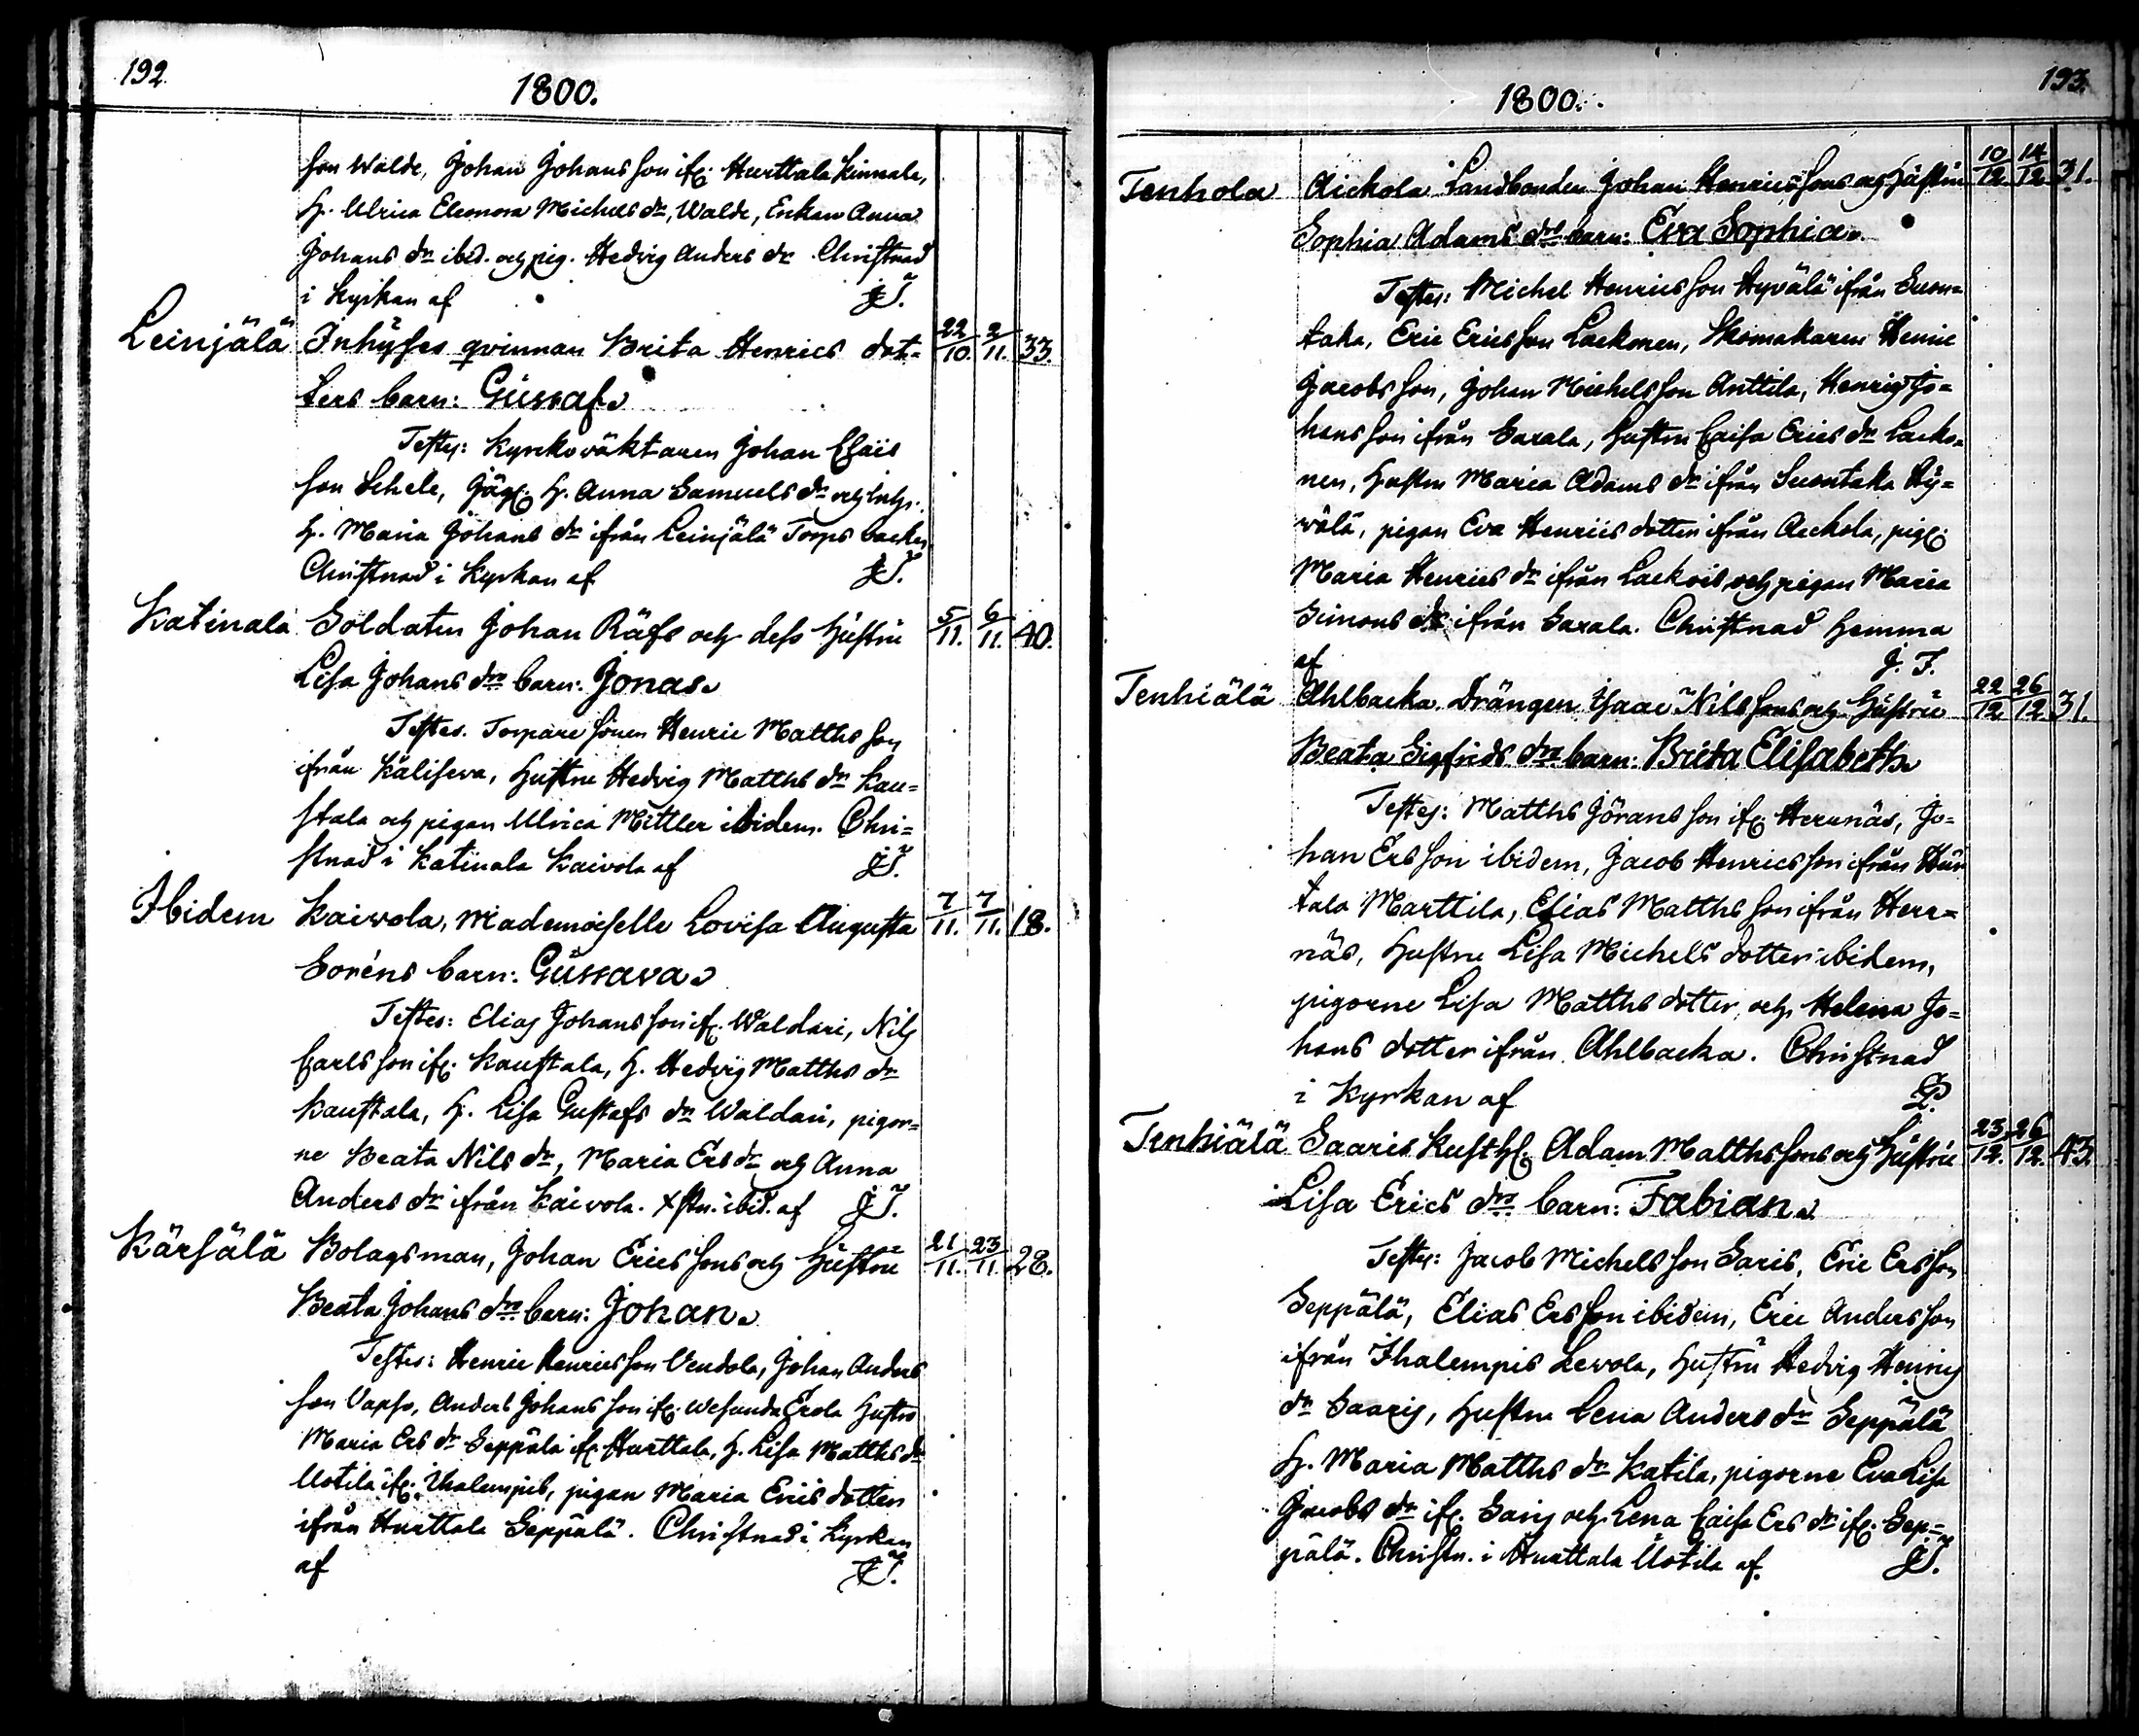 192.
1800.
son Walde, Johan Johansson ifr. Hurttala Kinnala,
H. Ulrica Eleonora Michels dr, Walde, Enkan Anna
Johans dr ibid. och pig. Hedvig Anders dr. Christnad
i Kyrkan af JT.
Leinjälä Inhyses qvinnan Brita Henrics dot- 22/10. 2/11. 33.
ters barn: Gustaf.
Testes: Kyrkoväktaren Johan Esais
son Schele, H. Anna Samuels dr och
H. Maria Johans dr ifrån Leinjälä Torps backe,
Christnad i Kyrkan af JT.
Katinala Soldaten Johan Räfs och dess hustru 5/11. 6/11. 40.
Lisa Johans drs barn: Jonas.
Testes. Torpare sonen Henric Matths son
ifrån Käliseva, hustru Hedvig Matths dr Kau-
stala och pigan Ulrica Mittler ibidem. Chri-
stnad i Katinala Kaivola af JT.
Ibidem Kaivola, Mademoiselle Lovisa Augusta 7/11. 7/11. 18.
Soréns barn: Gustava.
Testes: Elias Johansson ifr. Waldari, Nils
Carlsson ifr. Kaustala, H. Hedvig Matths dr
Kaustala, H. Lisa Gustafs dr Waldari, pigor-
ne Beata Nils dr, Maria Ers dr och Anna
Anders dr ifrån Kaivola. Xstn. ibid. af JT.
Kärsälä Bolagsman, Johan Ericssons och hustru 21/11. 23/11. 28.
Beata Johans drs barn: Johan.
Testes: Henric Henricsson Vendola, Johan Anders
son Vapso, Anders Johansson ifr. Wesunda Erola hustru
Maria Ers dr Seppälä ifr. Hurttala, H. Lisa Matths dr
Uotila ifr. Ihalempis, pigan Maria Erics dotter
ifrån Hurttala Seppälä. Christnad i Kyrkan
af JT.
193.
1800.
Tenhola Aickola Landbonden Johan Henricssons och hustru 10/12 14/12 31.
Sophia Adams drs barn: Eva Sophia.
Testes: Michel Henricsson Hyvälä ifrån Suon-
taka, Eric Ericsson Lackonen, Skomakaren Henric
Jacobsson, Johan Michelsson Anttila, Henric Jo-
hansson ifrån Saxala, hustru Caisa Erics dr Lacko-
nen, hustru Maria Adams dr ifrån Suontaka Hy-
wälä, pigan Eva Henrics dotter ifrån Aickola, pig.
Maria Henrics dr ifrån Lackois och pigan Maria
Simons dr ifrån Saxala. Christnad hemma
af J. T.
Tenhiälä Ahlbacka Drängen Isaac Nilssons och hustru 22/12 26/12 31.
Beata Sigfrids drs barn: Brita Elisabeth.
Testes: Matths Jöransson ifr. Herrnäs, Jo-
han Ersson ibidem, Jacob Henricsson ifrån Hur
tala Marttila, Elias Matthsson ifrån Herr-
näs, hustru Lisa Michels dotter ibidem,
pigorne Lisa Matths dotter och Helena Jo-
hans dotter ifrån Ahlbacka. Christnad
i Kyrkan af
Tenhiälä Saaris Adam Matthssons och hustru 23/12. 26/12. 43.
Lisa Erics drs barn: Fabian.
Testes: Jacob Michelsson Saris, Eric Ersson
Seppälä, Elias Ersson ibidem, Eric Andersson
ifrån Ihalempis Lewola, hustru Hedvig Henrics
dr Saaris, hustru Lena Anders dr Seppälä
H. Maria Matths dr Katila, pigorne Eva Lisa
Jacobs dr ifr. Saris och Lena Caisa Ers dr ifr. Sep-
pälä. Christn. i Hurttala Uotila af. JT.